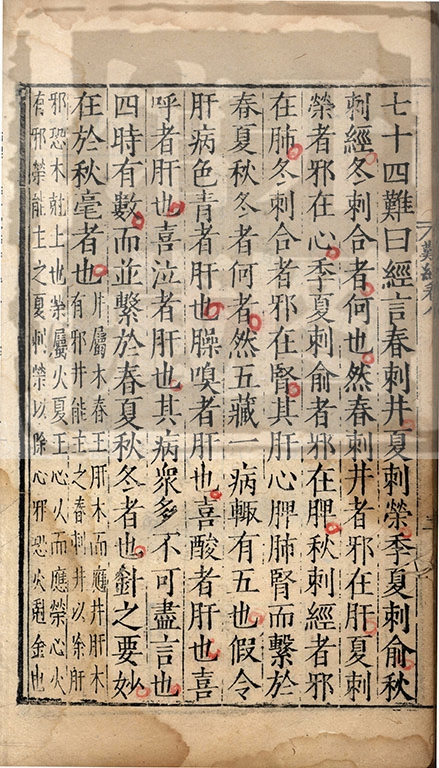 七十四難曰經言春刺井夏刺榮季夏刺俞秋
刺經冬刺合者何也然春刺井者邪在肝夏刺
榮者邪在心季夏刺俞者邪在脾秋刺經者邪
在肺冬刺合者邪在腎其肝心脾肺腎而繫於
春夏秋冬者何者然五藏一病輙有五也假令
肝病色青者肝也臊嗅者肝也喜酸者肝也喜
呼者肝也喜泣者肝也其病衆多不可盡言也
四時有數而並繫於春夏秋冬者也針之要妙
在於秋毫者也
井屬木春王肝木而應井肝木
有邪井能主之春刺井以除肝
邪恐木尅土也榮屬火夏王心火而應榮心火
有邪榮能主之夏刺榮以除心邪恐火尅金也
難經卷八